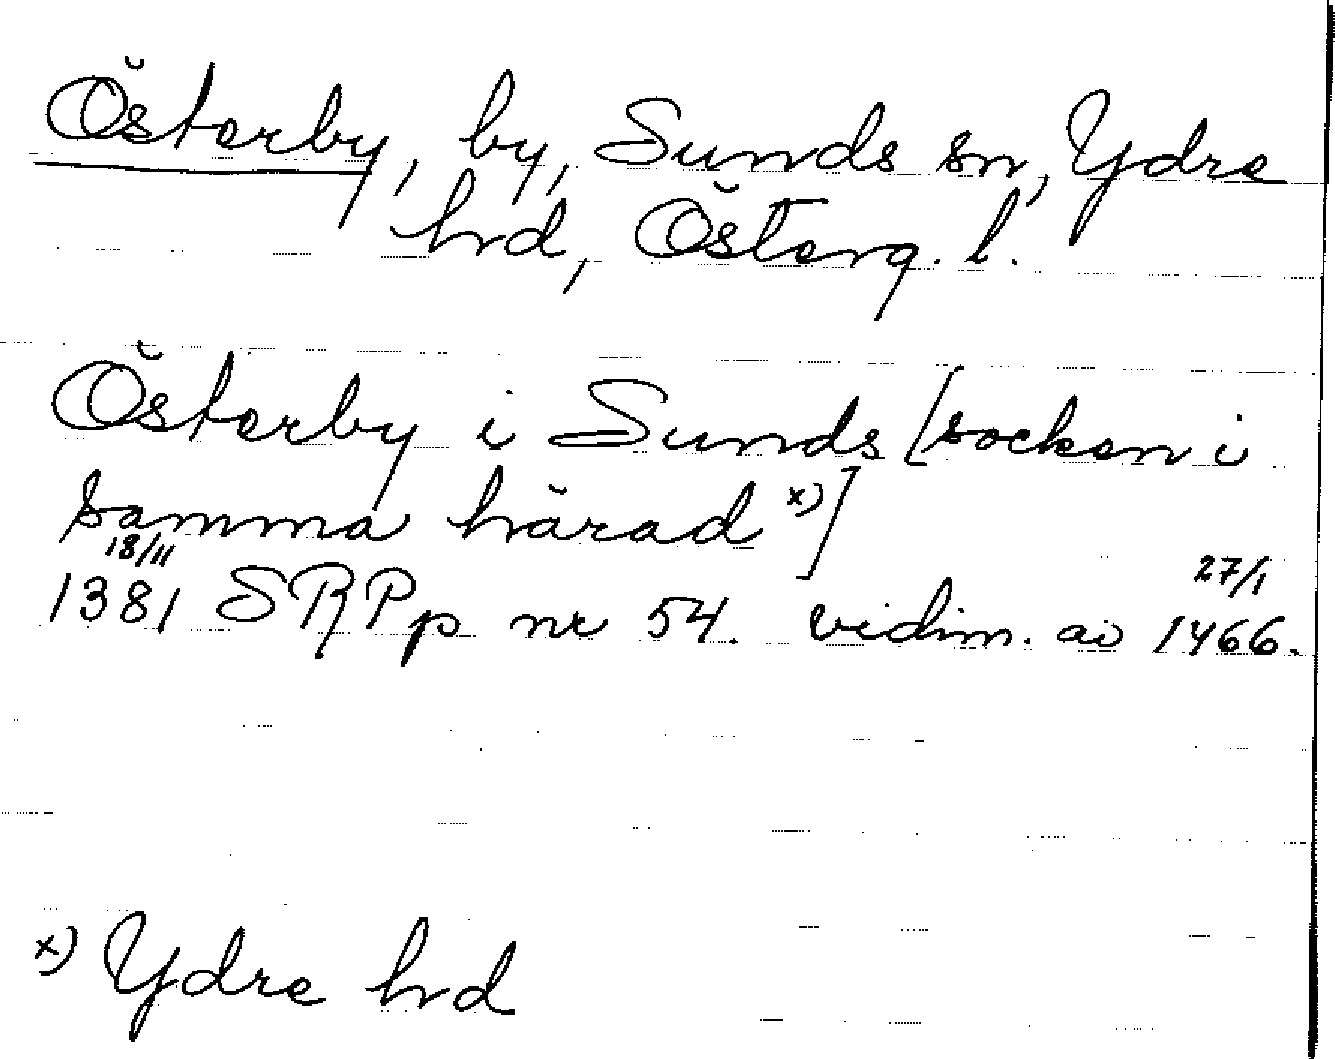 Österby, by, Sunds sn, Ydre
hrd, Österg. l.
Österby i Sunds [socken i
samma härad x)]
18/11
1381 SRPp nr 54. vidim. av 1466.
27/1
x) Ydre hrd